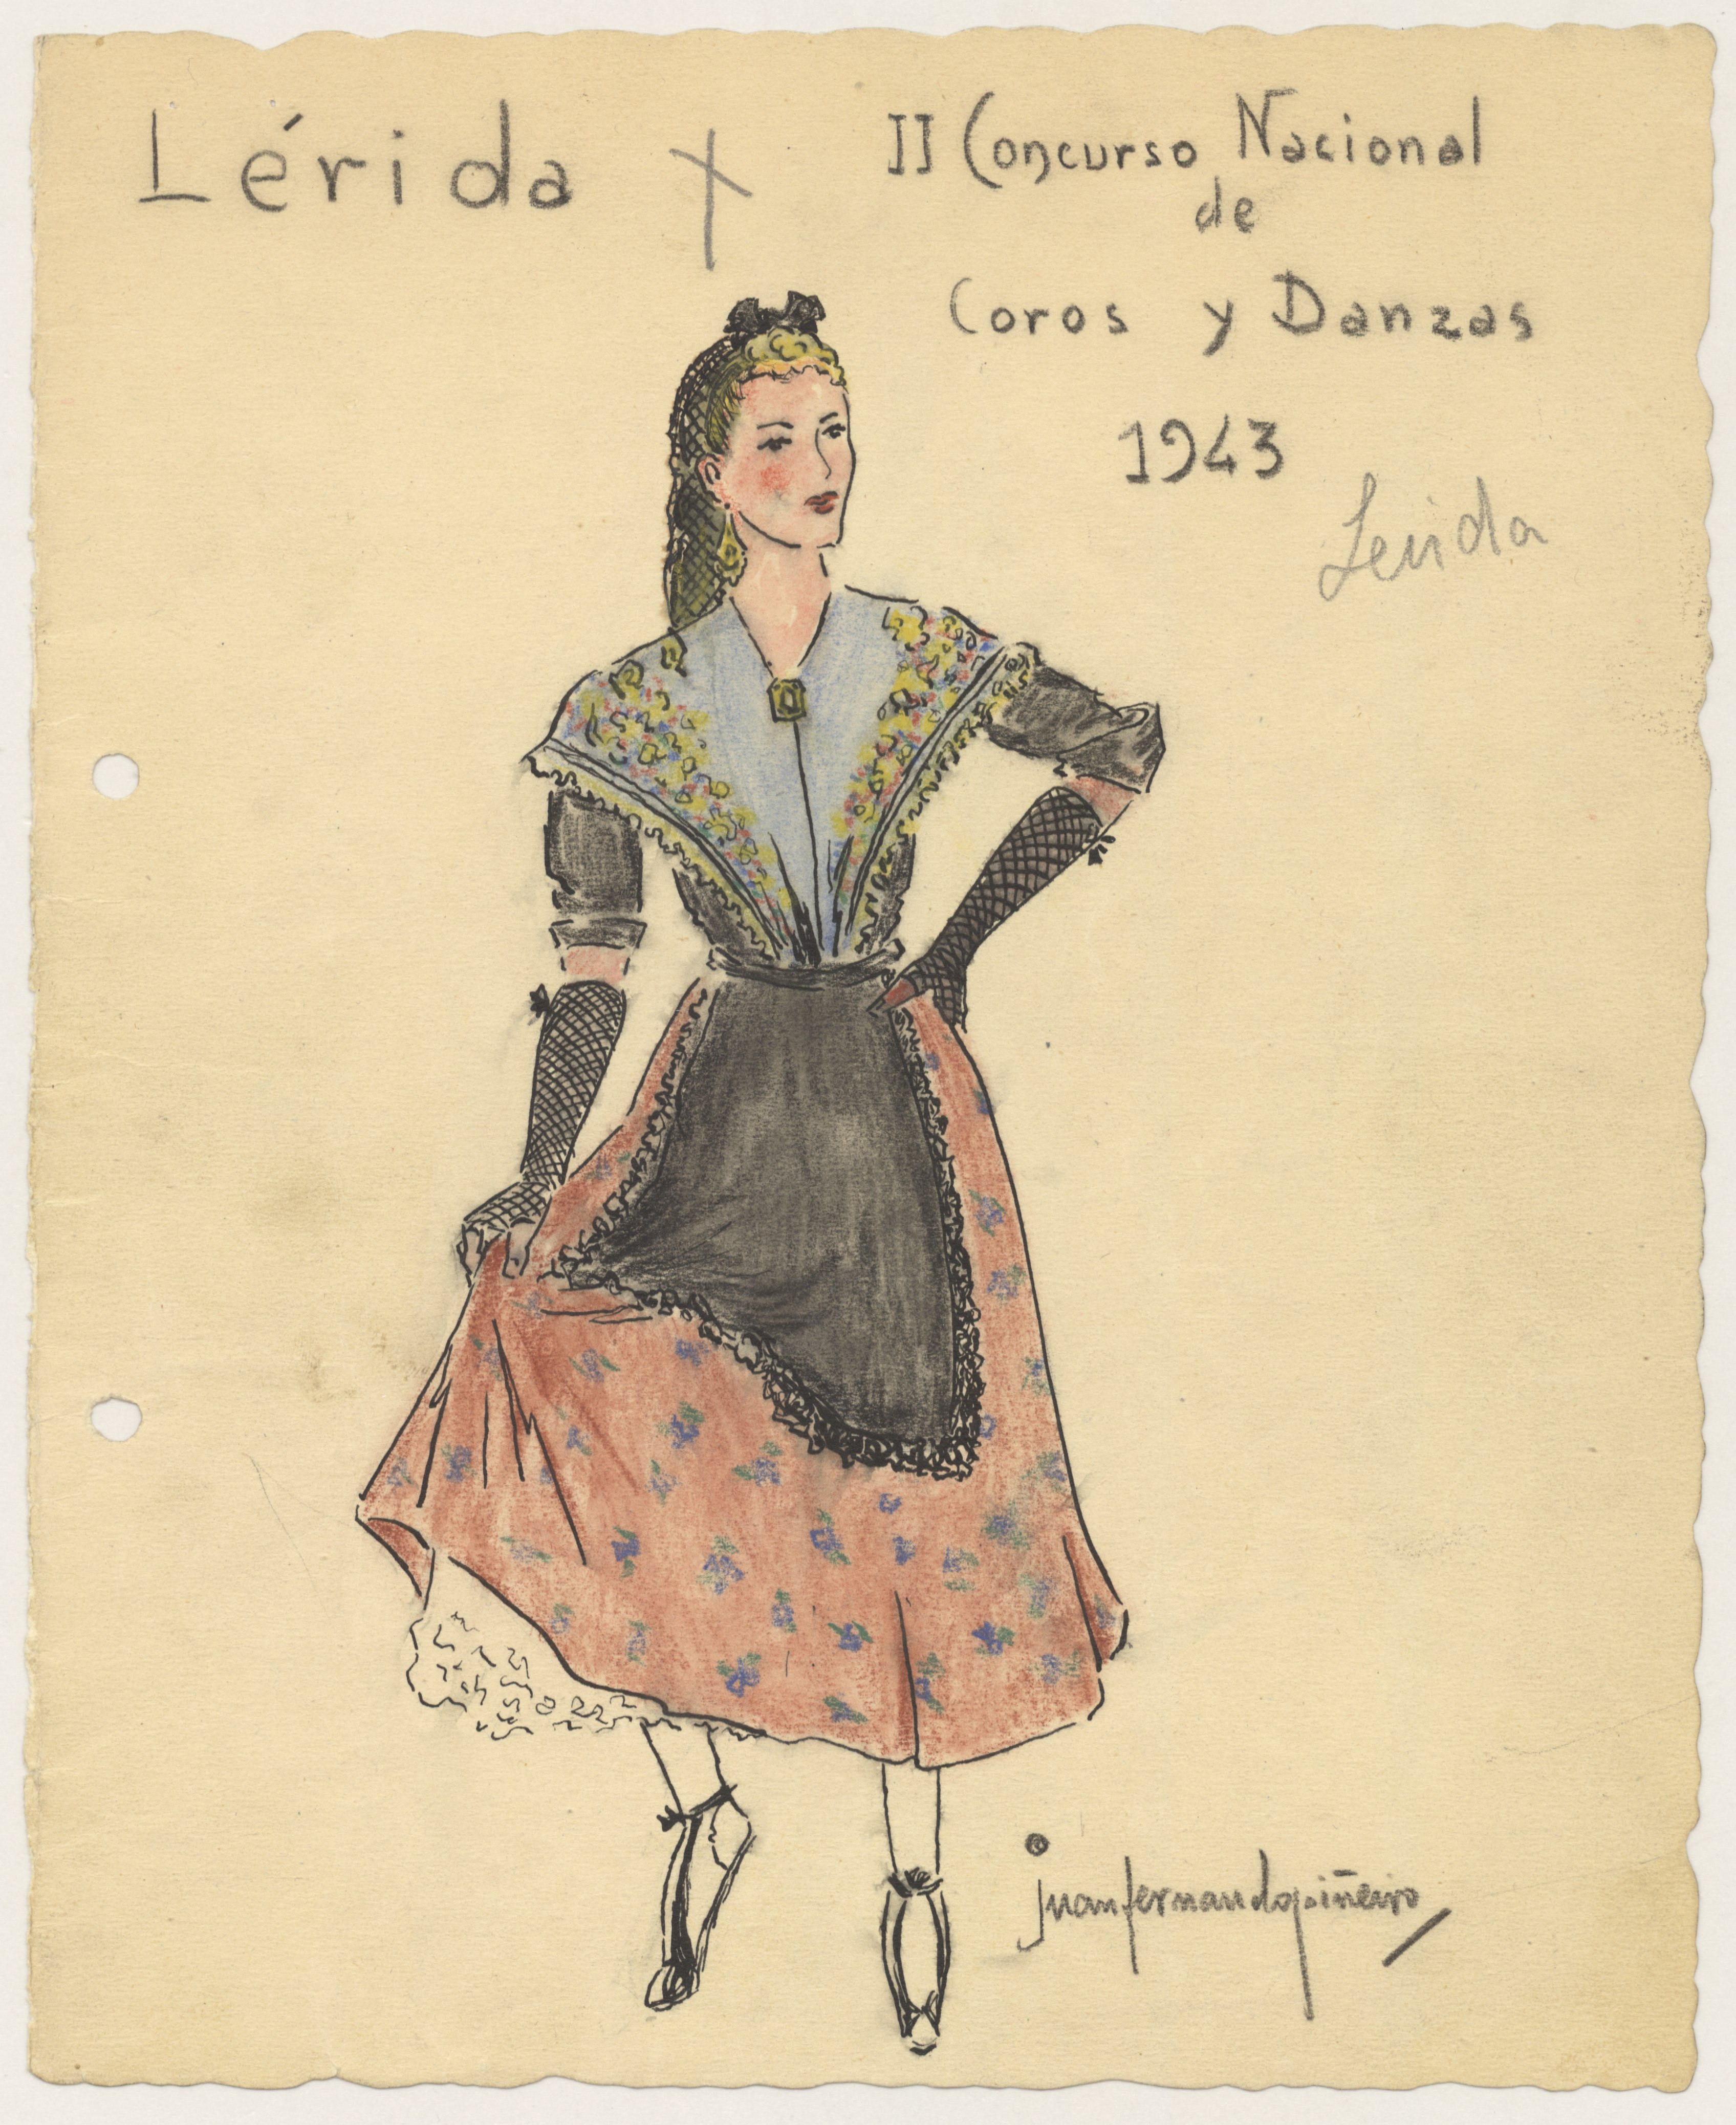 Lérida
II Concurso Nacional
de
Coros y Danzas
1943
Lerida
juanfernandopiñeiro